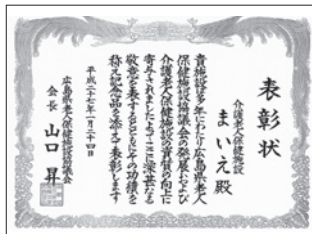 表彰状
介護老人保健施設
まいえ殿
貴施設は多年にわたり広島県老人
保健施設協議会の発展および
介護老人保健施設の資質の向上に
寄与されましたよってここに深甚なる
敬意を表するとともにその功績を
称え記念品を添えて表彰します
平成二十七年一月二十四日
広島県老人保健施設協議会
会長 山口 昇